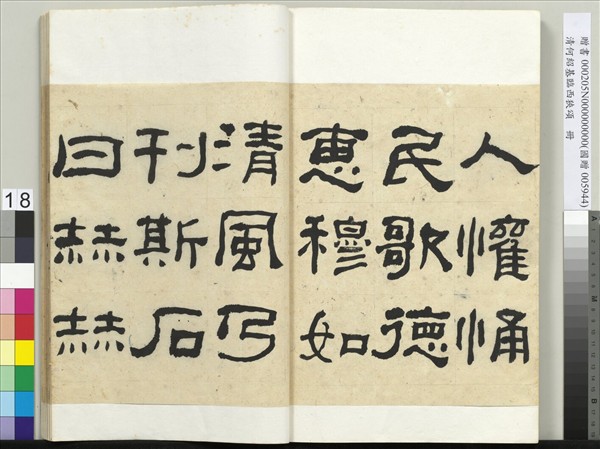 人懽悀
民歌德
惠穆如
清風乃
刊斯石
曰赫赫
贈書 000205N000000000(國贈 005944)
清何紹基臨西狹頌 冊
18
A
M
B